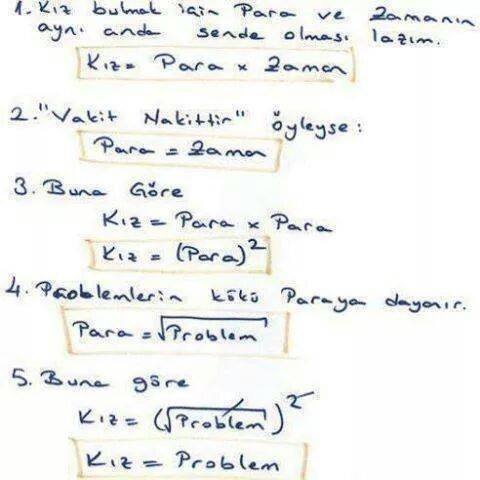 1. Kız bulmak için Para ve Zamanın
aynı anda sende olması lazım.
Kız = Para x Zaman
2. "Vakit Nakittir" öyleyse:
Para = Zaman
3. Buna Göre
Kız = Para x Para
Kız = (Para)²
4. Problemlerin kökü Paraya dayanır.
Para = √Problem
5. Buna göre
Kız = (√Problem)²
Kız = Problem